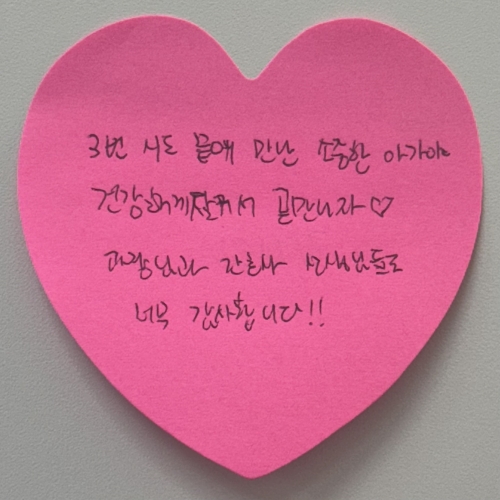 3번 시도 끝에 만난 소중한 아가야
건강하게 잘커서 곧만나자♡
과장님과 간호사 선생님들도
너무 감사합니다!!